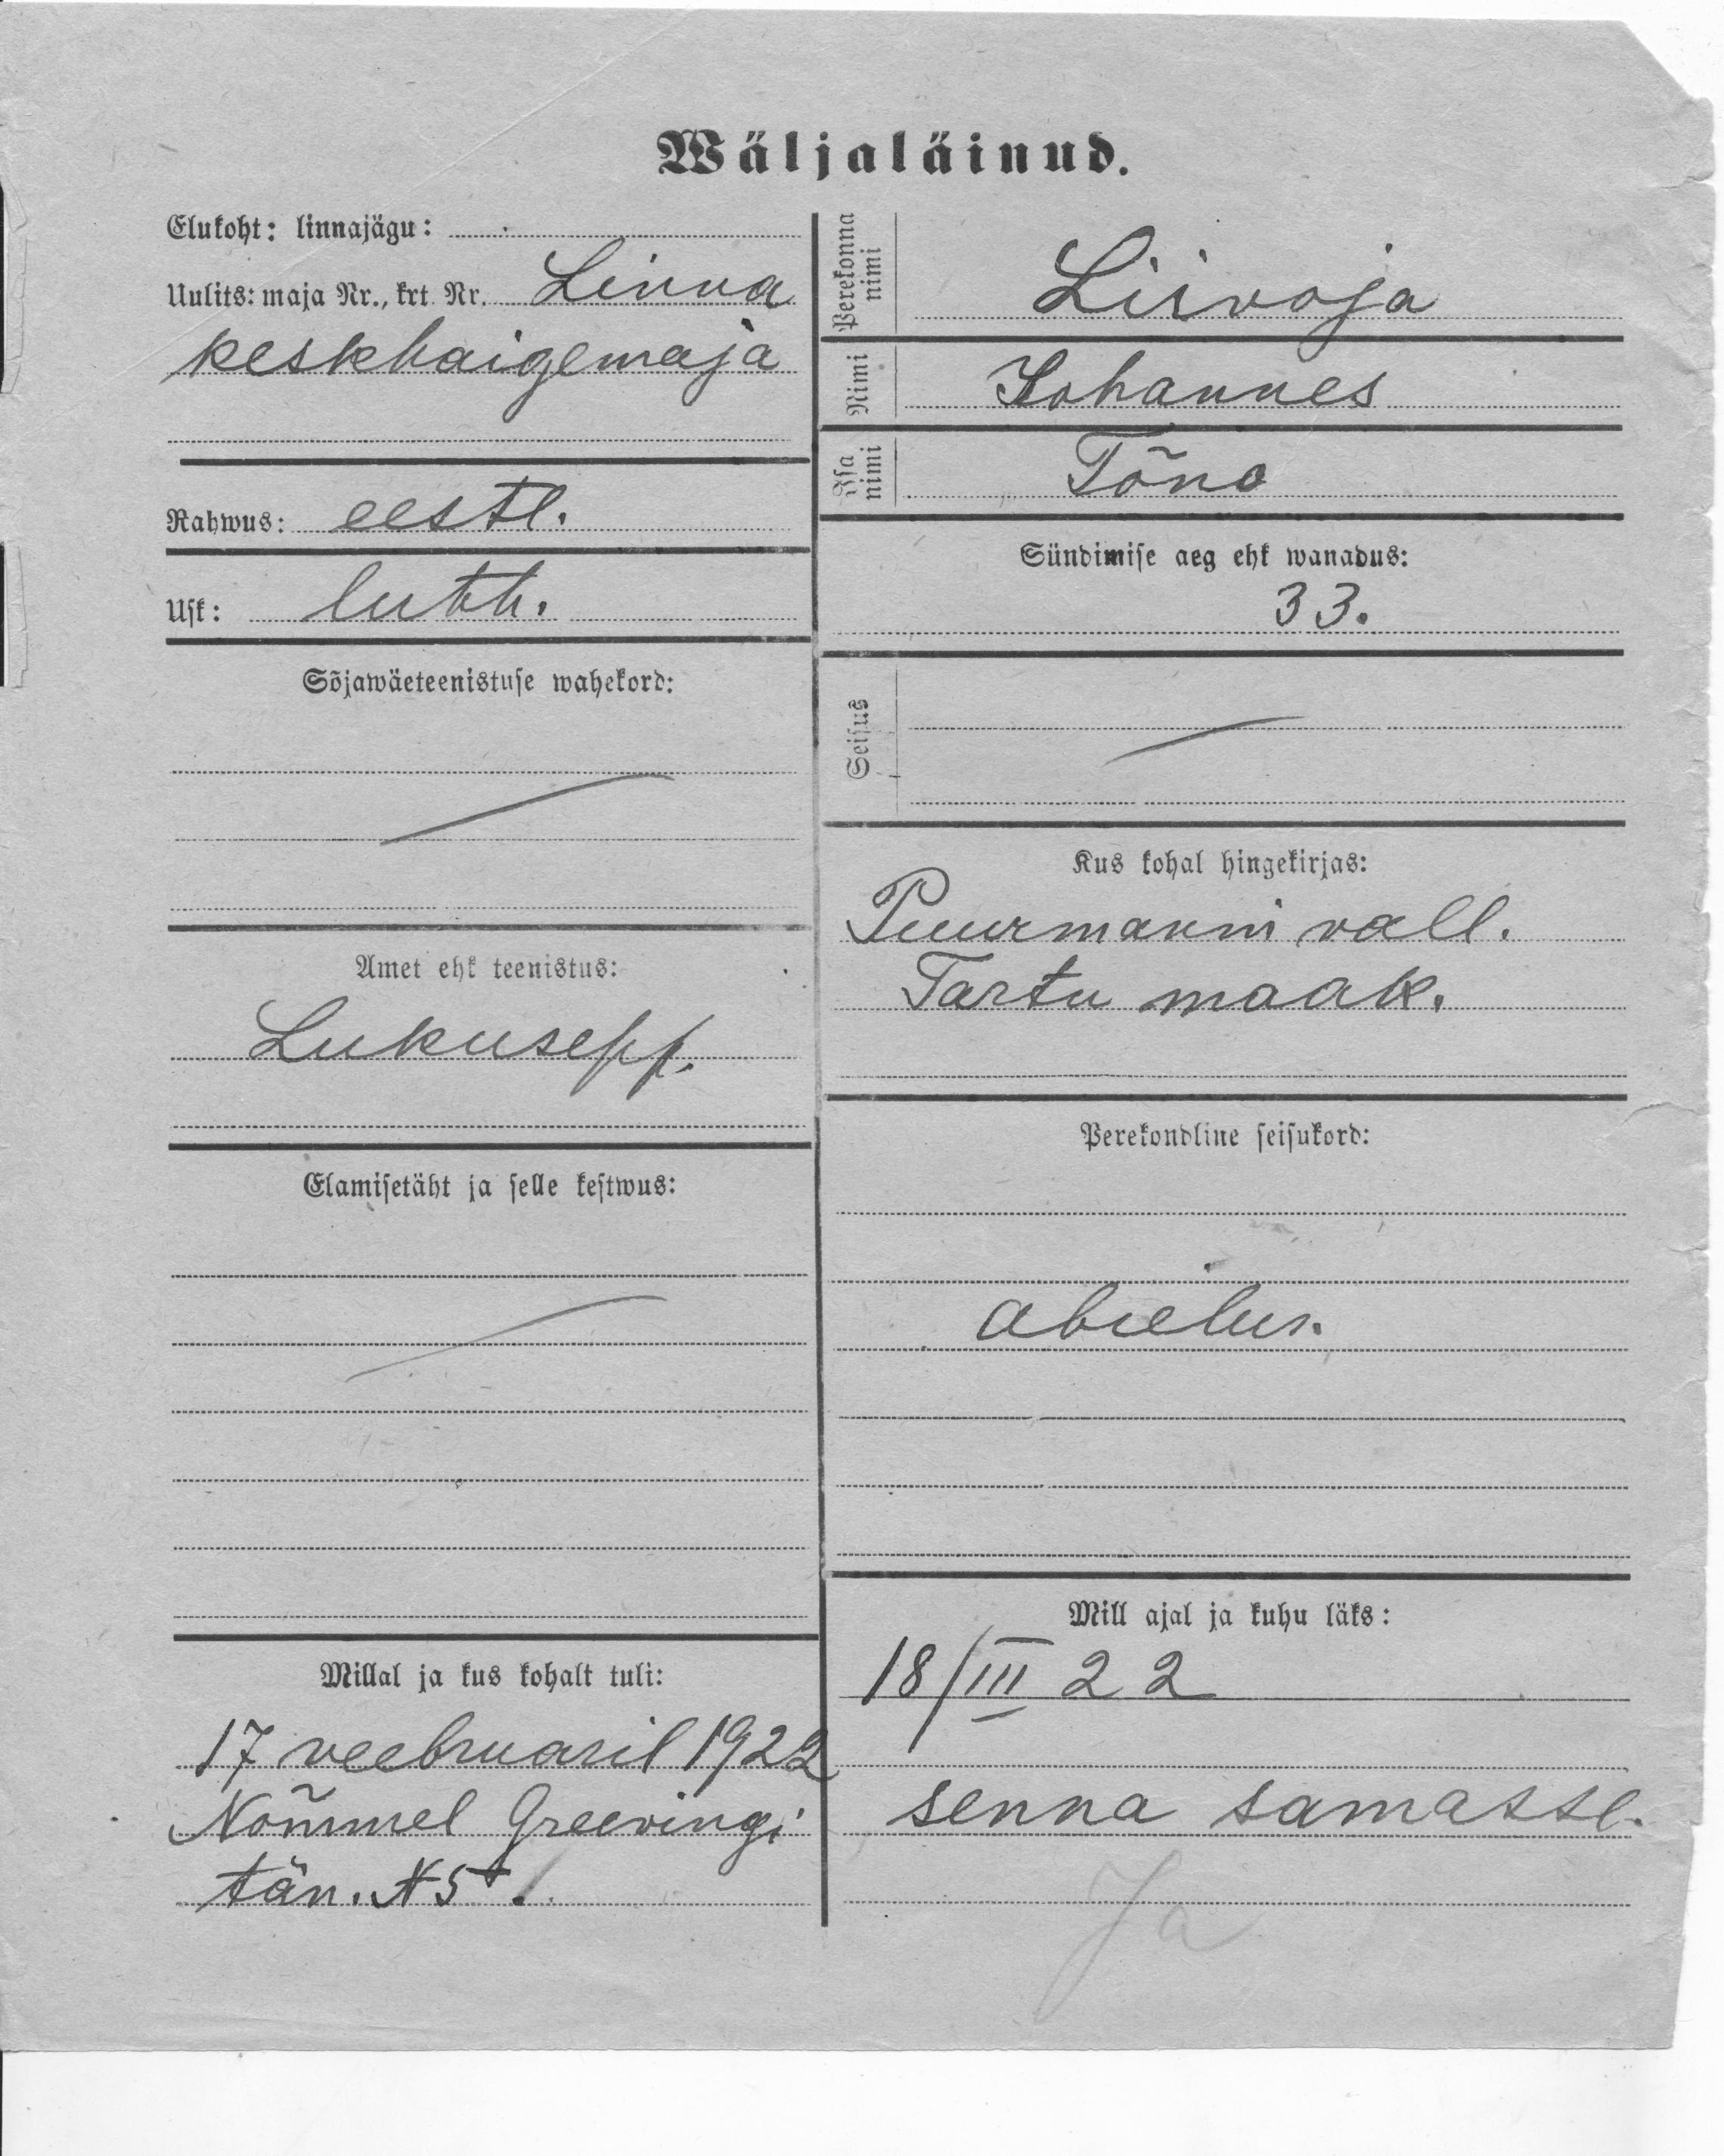 Wäljaläinud.
Elukoht: linnajägu:
Uulits: maja Nr., krt Nr. Linna
keskhaigemaja
Rahwus: eestl.
Usk: luth.
Sõjawäeteenistuse wahekord:
Amet ehk teenistus:
Lukusepp.
Elamisetäht ja selle kestwus:
Millal ja kus kohalt tuli:
17 veebruaril 1922
Nõmmel Greevingi
tän. N 5.
Perekonna nimi
Liivoja
Nimi
Johannes
Isa nimi
Tõno
Sündimise aeg ehk wanadus:
33.
Seisus
Kus kohal hingekirjas:
Puurmanni vall.
Tartu maak.
Perekondline seisukord:
abielus.
Mill ajal ja kuhu läks:
18/III 22
senna samasse.
Ja